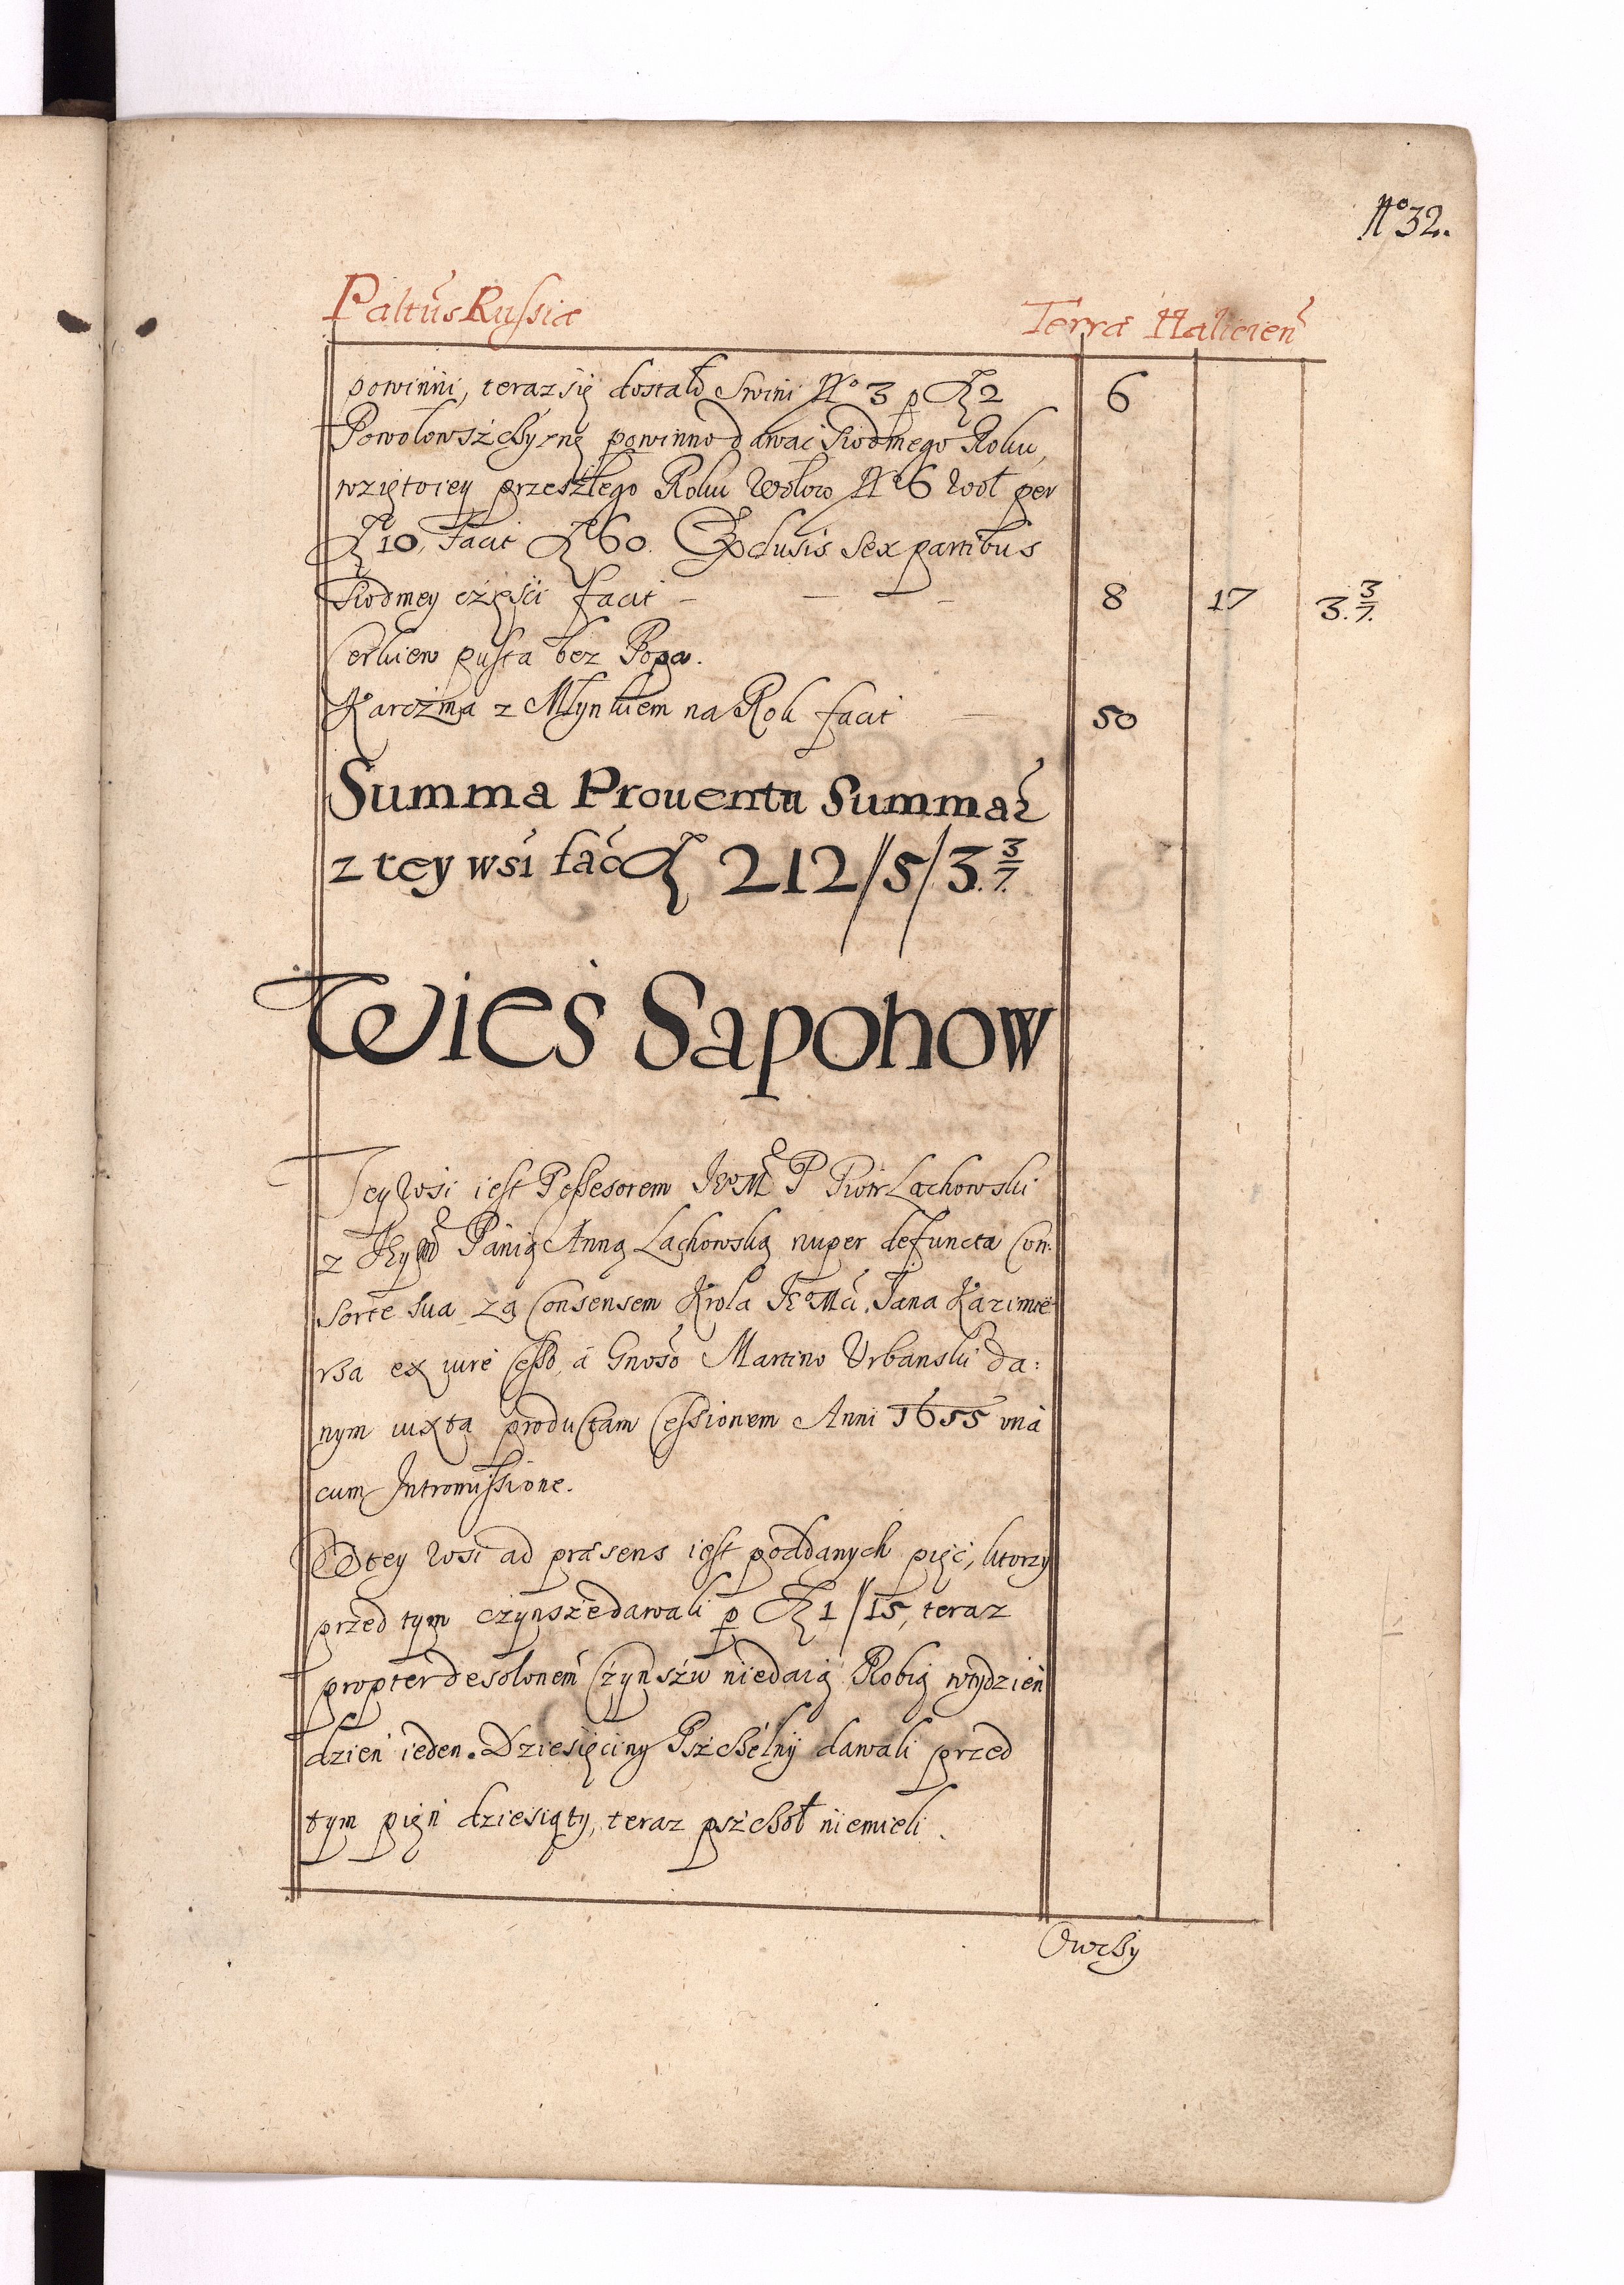 No 32.
Paltus Russiæ Terræ Halicien
powinni, teraz się dostało Swini No 3 p fl 2 6
Powołowszczyznę powinno dawać siodmego Roku,
wziętoiey przeszłego Roku Wołow No 6 woł per
fl 10, facit fl 60. Exclusis sex partibus
siodmey częsci facit - - - 8 17 3. 3/7.
Cerkiew pusta bez Popa.
Karczma z Młynkiem na Rok facit - 50
Summa Prouentu Summa
z tey wsi fac fl 212//5/3. 3/7.
Wieś Sapohow
Tey wsi iest Possesorem JeoM P Piotr Lachowski
z JeyM Panią Anną Lachowską nuper defuncta Con:
sorte sua za Consensem Krola JeoMci Jana Kazimie
rza ex iure Cesso, á Gnoso Martino Urbanski da:
nym iuxta productam Cessionem Anni 1655 vná
cum Intromissione.
W tey wsi ad præsens iest poddanych pięć, ktorzy
przed tym czynsze dawali p fl 1//15, teraz
propter desolonem Czynszu niedaią Robią w tydzien
dzień ieden. Dziesięciny Pszczelny dawali przed
tym pień dziesiąty, teraz pszczoł niemieli.
Owczy